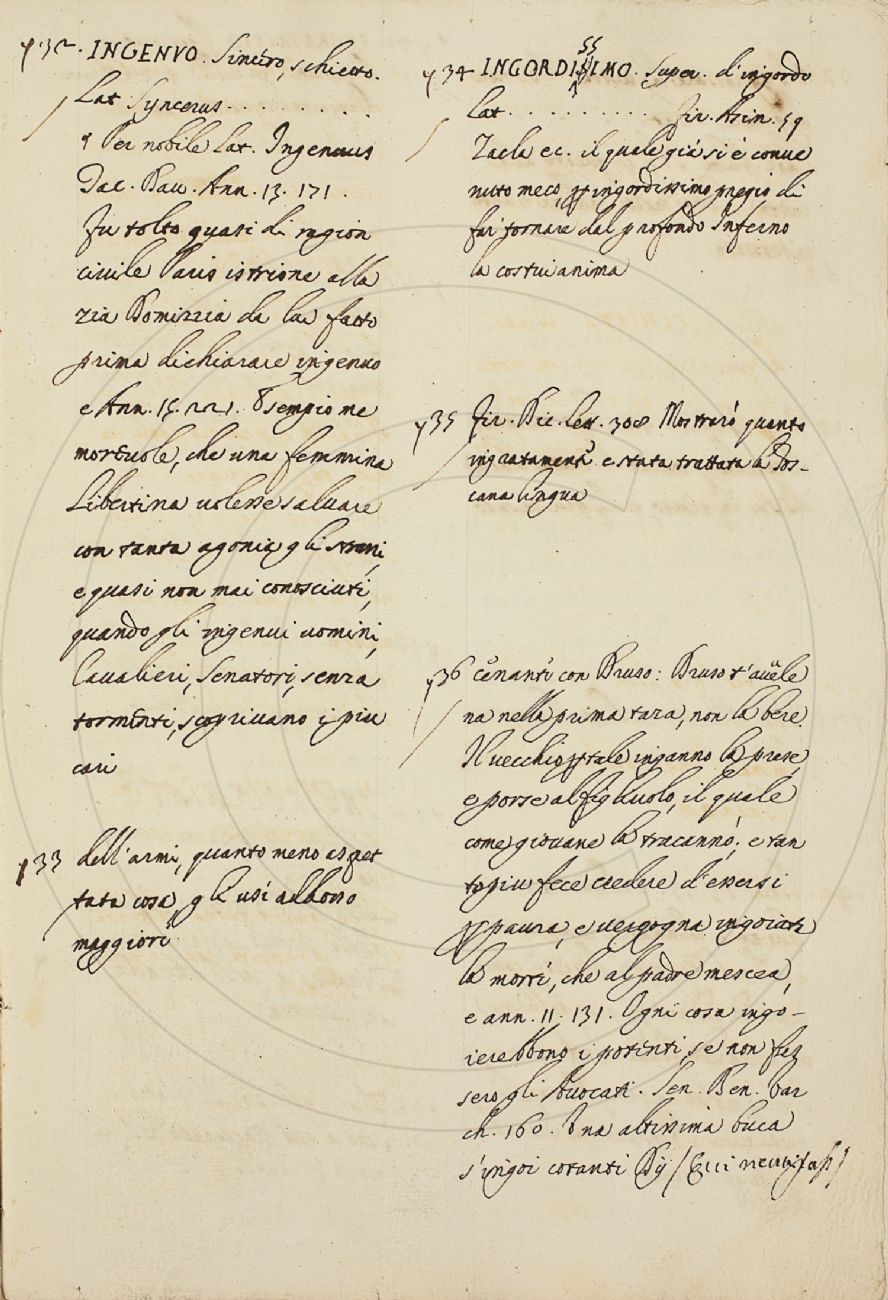 132. INGENVO. Sincero, schietto.
Lat. Syncerus. . . . . . . .
¶ Per nobile Lat. Ingenuus
Dav. Ann. 13. 171.
Fu tolto quasi di ragion
civile Paris istrione alla
zia Domizzia da lui fatto
prima dichiarare ingenuo
e Ann. 15. 221. Esempio me
morevole, che una femmina
Libertina volesse salvare
con tanta agonia gli strani,
e quasi non mai conosciuti,
quando gli ingenui uomini,
Cavalieri, Senatori, senza
tormenti, scoprivano i piu
cari
133 dell'armi, quanto meno aspet
tata cosa, gli usi addosso
maggiori
134 INGORDISSIMO. Super. d'ingordo
Lat. . . . . . . . . Fir. Asin. 59
Zacla ec. il quale già si è conve
nuto meco, p ingordissimo pregio di
far tornare dal profondo Inferno
la costui anima
135 Fir. Dic. Lett. 308 Mostrarò quanto
ingratamente e stata trattata la Tos-
cana lingua
136 cenanti con Druso: Druso t'avvele
na nella prima tazza, non la bere.
Il vecchio p tale inganno la prese,
e porse al figliuolo, il quale
come giovane la tracannò; e tan
to piu fece credere d'essersi
p paura, e vergogna ingoiata
la morte, che al padre mescea,
e ann. 11. 131. Ogni cosa ingo-
ierebbono i potenti, se non fus
sero gli Avvocati. Sen. Ben. Var
ch. 160. Una altissima buca
s'ingoi cotanti Dij